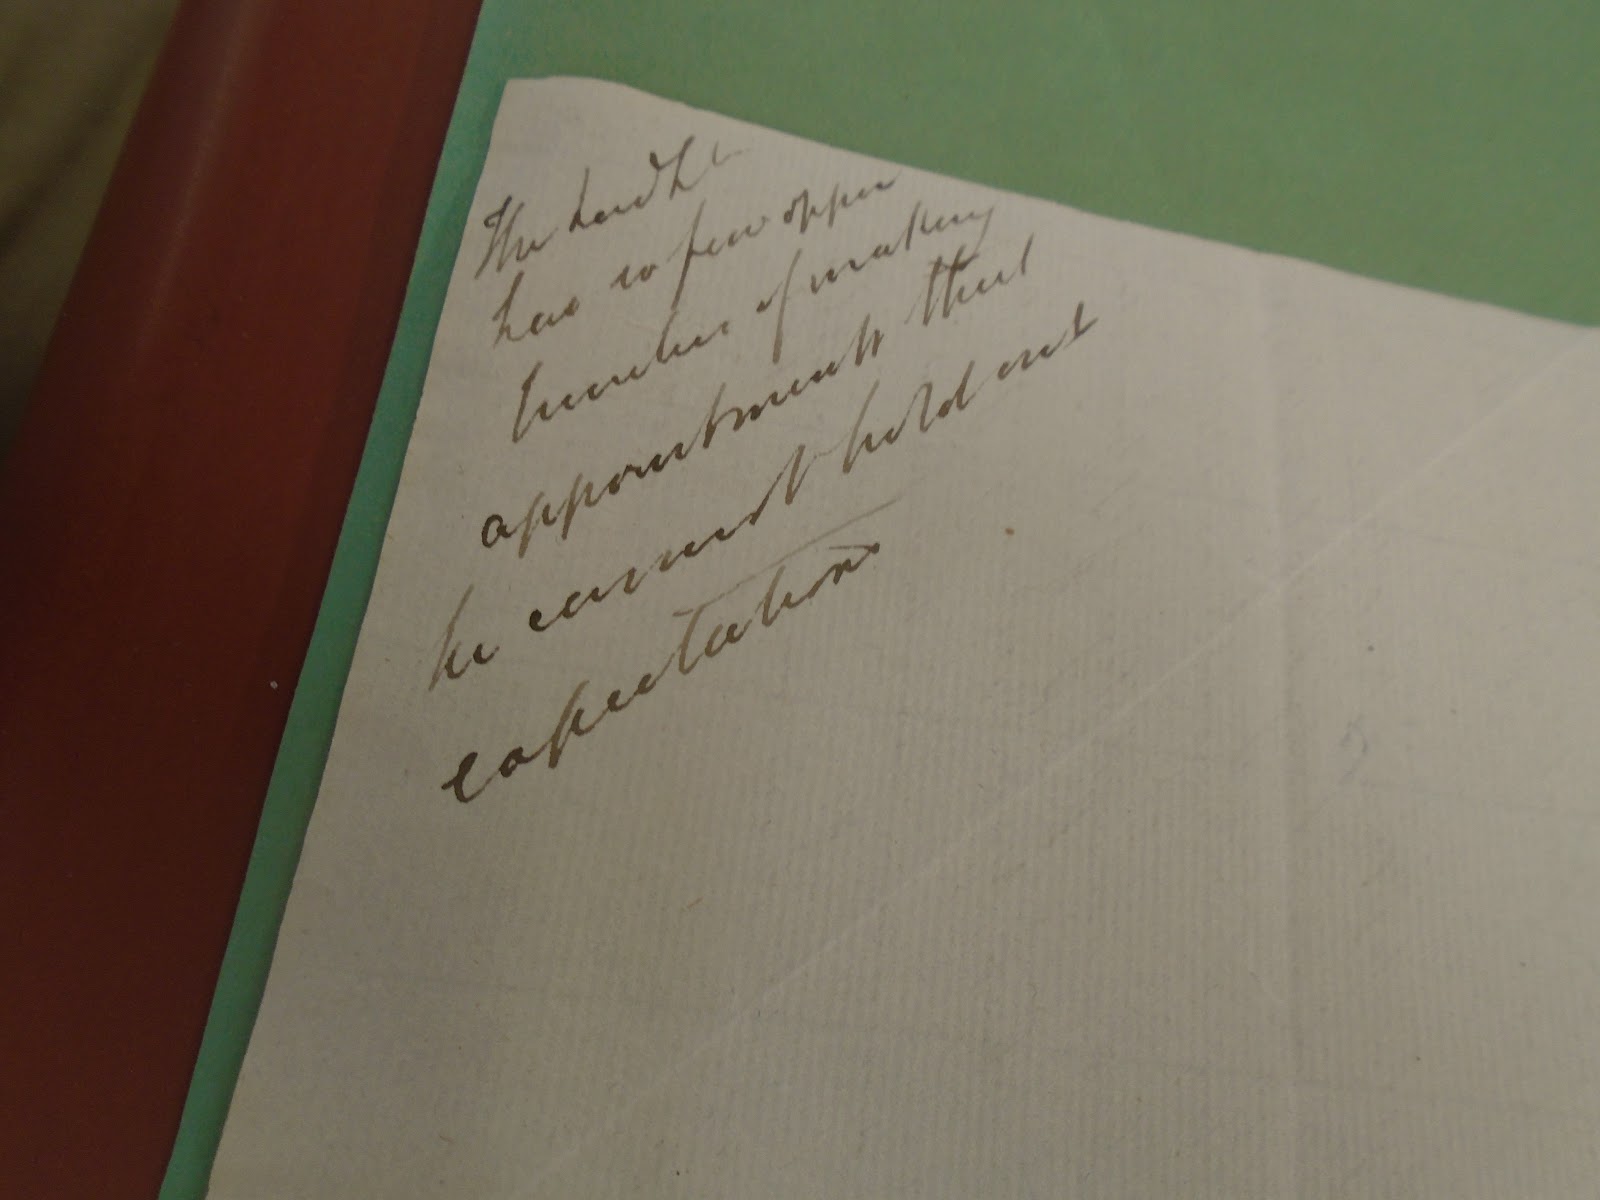 The Lord Lt
has so few oppor
tunities of making
appointments that
he cannot hold out
expectations